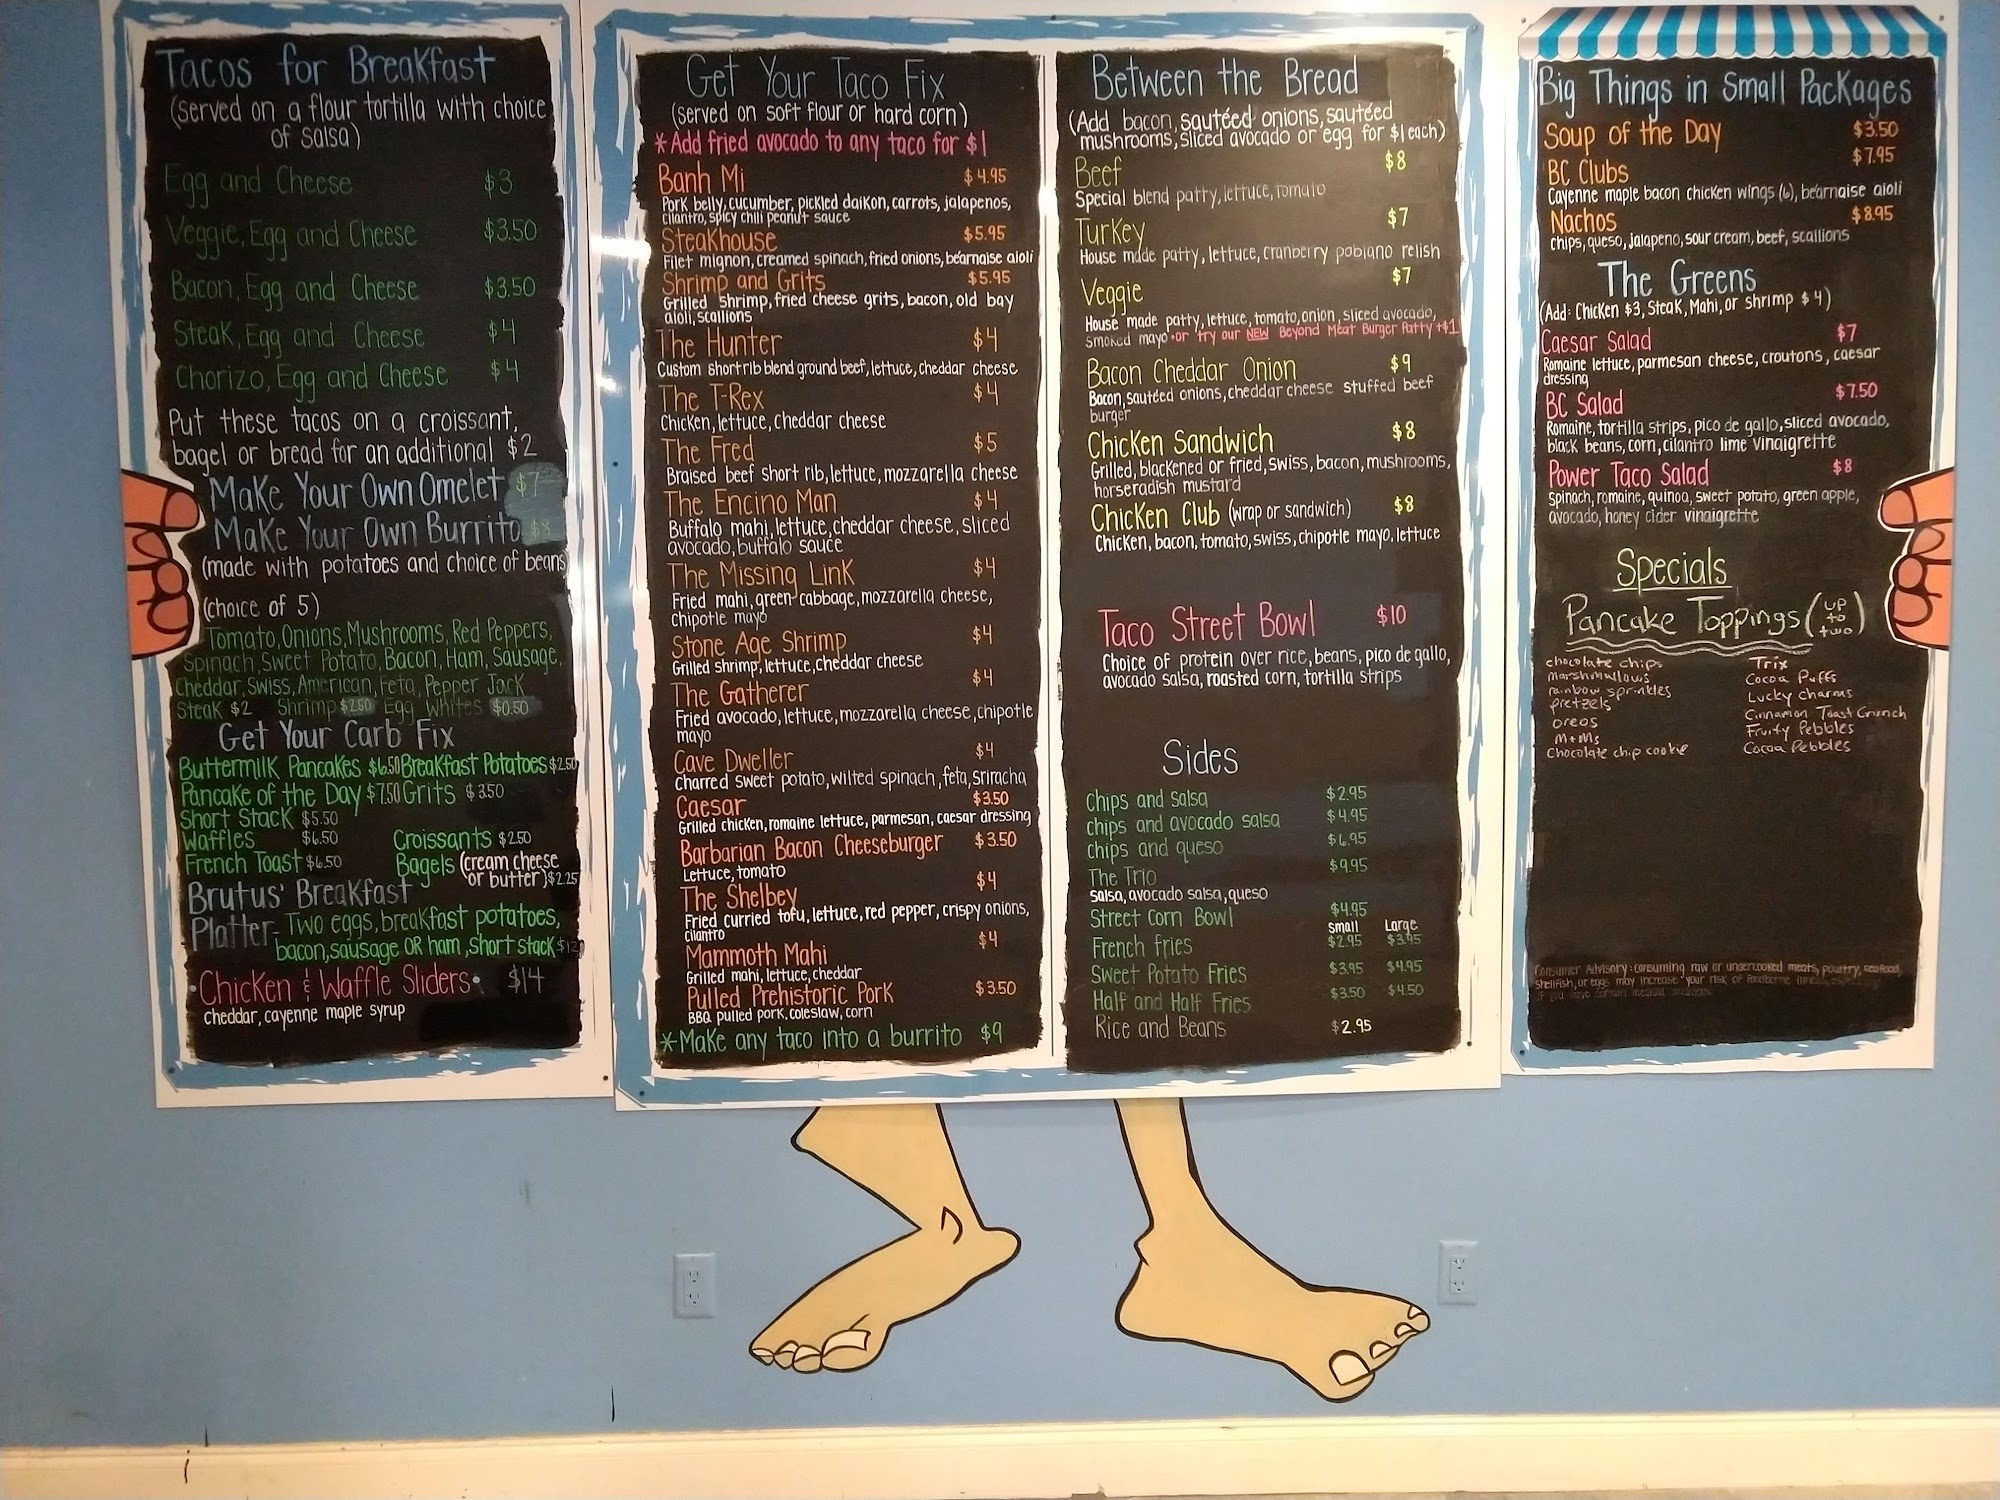 Tacos for Breakfast
(served on a flour tortilla with choice
of salsa)
Egg and Cheese $3
Veggie, Egg and Cheese $3.50
Bacon, Egg and Cheese $3.50
Steak, Egg and Cheese $4
Chorizo, Egg and Cheese $4
Put these tacos on a croissant,
bagel or bread for an additional $2
Make Your Own Omelet $7
Make Your Own Burrito $8
(made with potatoes and choice of beans)
(choice of 5)
Tomato, Onions, Mushrooms, Red Peppers,
Spinach, Sweet Potato, Bacon, Ham, Sausage,
Cheddar, Swiss, American, Feta, Pepper Jack
Steak $2 Shrimp $2.50 Egg Whites $0.50
Get Your Carb Fix
Buttermilk Pancakes $6.50 Breakfast Potatoes $2.50
Pancake of the Day $7.50 Grits $3.50
Short Stack $5.50
Waffles $6.50 Croissants $2.50
French Toast $6.50 Bagels (cream cheese
or butter) $2.25
Brutus' Breakfast
Platter- Two eggs, breakfast potatoes,
bacon, sausage OR ham, short stack
Chicken & Waffle Sliders • $14
cheddar, cayenne maple syrup
Get Your Taco Fix
(served on soft flour or hard corn)
*Add fried avocado to any taco for $1
Banh Mi $4.95
Pork belly, cucumber, pickled daikon, carrots, jalapenos,
cilantro, spicy chili peanut sauce
Steakhouse $5.95
Filet mignon, creamed spinach, fried onions, béarnaise aioli
Shrimp and Grits $5.95
Grilled shrimp, fried cheese grits, bacon, old bay
aioli, scallions
The Hunter $4
Custom shortrib blend ground beef, lettuce, cheddar cheese
The T-Rex $4
Chicken, lettuce, cheddar cheese
The Fred $5
Braised beef short rib, lettuce, mozzarella cheese
The Encino Man $4
Buffalo mahi, lettuce, cheddar cheese, sliced
avocado, buffalo sauce
The Missing Link $4
Fried mahi, green cabbage, mozzarella cheese,
chipotle mayo
Stone Age Shrimp $4
Grilled shrimp, lettuce, cheddar cheese
The Gatherer $4
Fried avocado, lettuce, mozzarella cheese, chipotle
mayo
Cave Dweller $4
Charred sweet potato, wilted spinach, feta, sriracha
Caesar $3.50
Grilled chicken, romaine lettuce, parmesan, caesar dressing
Barbarian Bacon Cheeseburger $3.50
Lettuce, tomato
The Shelbey $4
Fried curried tofu, lettuce, red pepper, crispy onions,
cilantro
Mammoth Mahi $4
Grilled mahi, lettuce, cheddar
Pulled Prehistoric Pork $3.50
BBQ pulled pork, coleslaw, corn
*Make any taco into a burrito $9
Between the Bread
(Add bacon, sautéed onions, sautéed
mushrooms, sliced avocado or egg for $1 each)
Beef $8
Special blend patty, lettuce, tomato
Turkey $7
House made patty, lettuce, cranberry pobiano relish
Veggie $7
House made patty, lettuce, tomato, onion, sliced avocado,
smoked mayo •or try our NEW Beyond Meat Burger Patty +$1
Bacon Cheddar Onion $9
Bacon, sautéed onions, cheddar cheese stuffed beef
burger
Chicken Sandwich $8
Grilled, blackened or fried, swiss, bacon, mushrooms,
horseradish mustard
Chicken Club (wrap or sandwich) $8
Chicken, bacon, tomato, swiss, chipotle mayo, lettuce
Taco Street Bowl $10
Choice of protein over rice, beans, pico de gallo,
avocado salsa, roasted corn, tortilla strips
Sides
Chips and salsa $2.95
chips and avocado salsa $4.95
chips and queso $6.95
The Trio $9.95
Salsa, avocado salsa, queso
Street Corn Bowl $4.95
small Large
French fries $2.95 $3.95
Sweet Potato Fries $3.95 $4.95
Half and Half Fries $3.50 $4.50
Rice and Beans $2.95
Big Things in Small Packages
Soup of the Day $3.50
BC Clubs $7.95
Cayenne maple bacon chicken wings (6), béarnaise aioli
Nachos $8.95
chips, queso, jalapeno, sour cream, beef, scallions
The Greens
(Add: Chicken $3, Steak, Mahi, or shrimp $4)
Caesar Salad $7
Romaine lettuce, parmesan cheese, croutons, caesar
dressing
BC Salad $7.50
Romaine, tortilla strips, pico de gallo, sliced avocado,
black beans, corn, cilantro lime vinaigrette
Power Taco Salad $8
Spinach, romaine, quinoa, sweet potato, green apple,
avocado, honey cider vinaigrette
Specials
Pancake Toppings (up to two)
chocolate chips Trix
marshmallows Cocoa Puffs
rainbow sprinkles Lucky Charms
pretzels Cinnamon Toast Crunch
oreos Fruity Pebbles
M+Ms Cocoa Pebbles
chocolate chip cookie
Consumer Advisory: consuming raw or undercooked meats, poultry, seafood,
shellfish, or eggs may increase your risk of foodborne illness, especially
if you have certain medical conditions